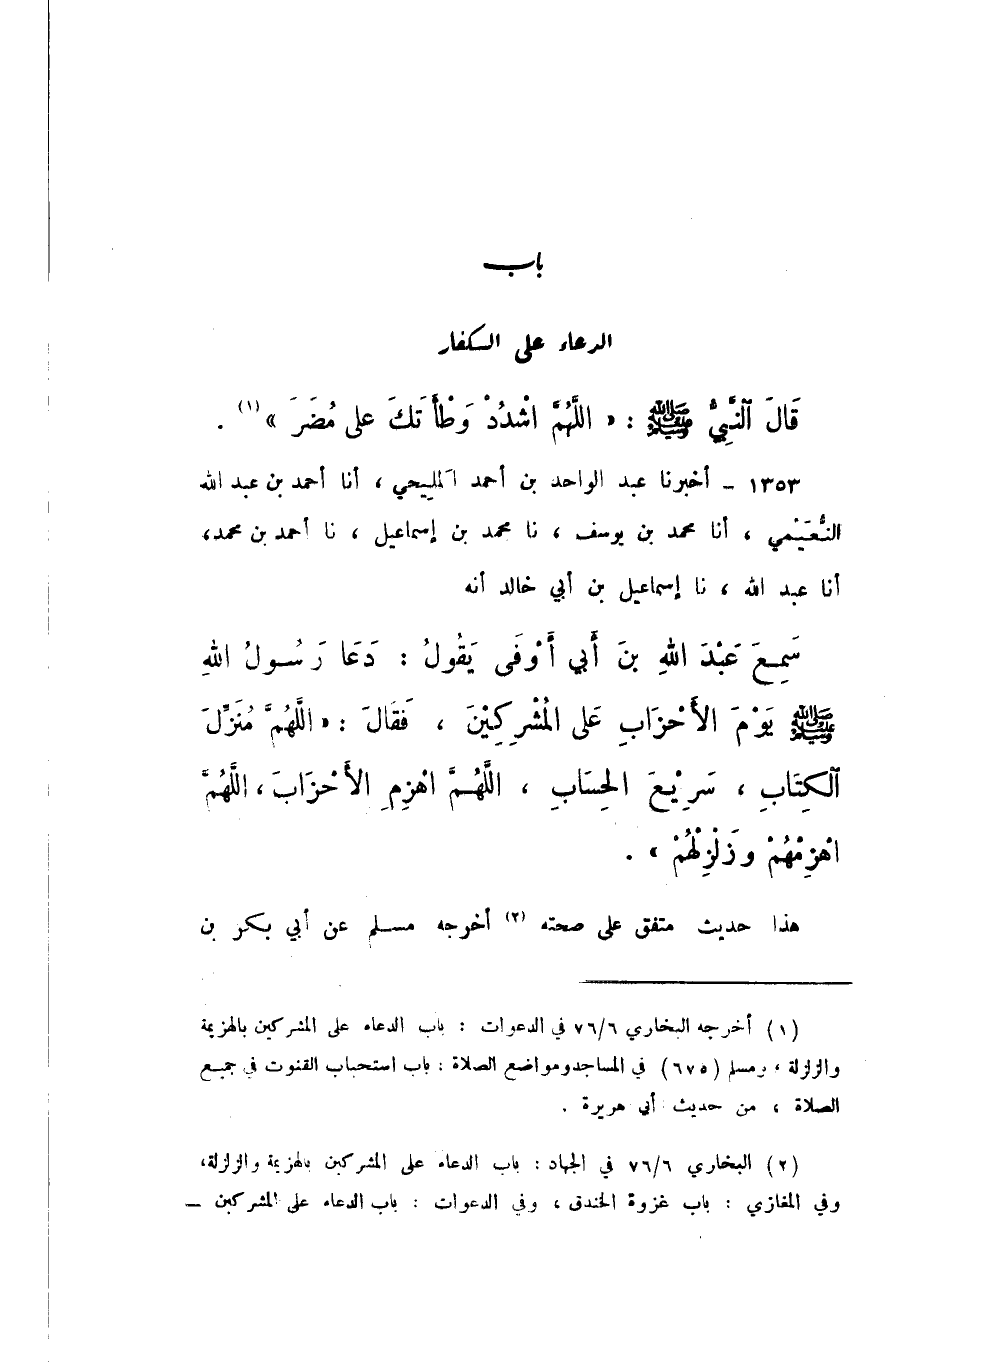 باب
الدعاء على الكفار
قَالَ ٱلنَّبِيُّ ﷺ : « اللَّهُمَّ اشْدُدْ وَطْأَتَكَ على مُضَرَ » (١) .
١٣٥٣ – أخبرنا عبد الواحد بن أحمد المليحي ، أنا أحمد بن عبد الله
النُّعَيْمي ، أنا محمد بن يوسف ، نا محمد بن إسماعيل ، نا أحمد بن محمد،
أنا عبد الله ، نا إسماعيل بن أبي خالد أنه
سَمِعَ عَبْدَ اللهِ بنَ أَبي أَوْفَى يَقُولُ : دَعَا رَسُولُ اللهِ
ﷺ يَوْمَ الأَحْزَابِ عَلى المُشْرِكِيْنَ ، فَقَالَ : « اللَّهُمَّ مُنَزِّلَ
ٱلكِتَابِ ، سَرِيْعَ الحِسَابِ ، اللَّهُمَّ اهْزِمِ الأَحْزَابَ ، اللَّهُمَّ
اهْزِمْهُمْ وزَلْزِلْهُمْ » .
هذا حديث متفق على صحته (٢) أخرجه مسلم عن أبي بكر بن
(١) أخرجه البخاري ٧٦/٦ في الدعوات : باب الدعاء على المشركين بالهزيمة
والزلزلة ، ومسلم (٦٧٥) في المساجد ومواضع الصلاة : باب استحباب القنوت في جميع
الصلاة ، من حديث أبي هريرة .
(٢) البخاري ٧٦/٦ في الجهاد : باب الدعاء على المشركين بالهزيمة والزلزلة،
وفي المغازي : باب غزوة الخندق ، وفي الدعوات : باب الدعاء على المشركين –